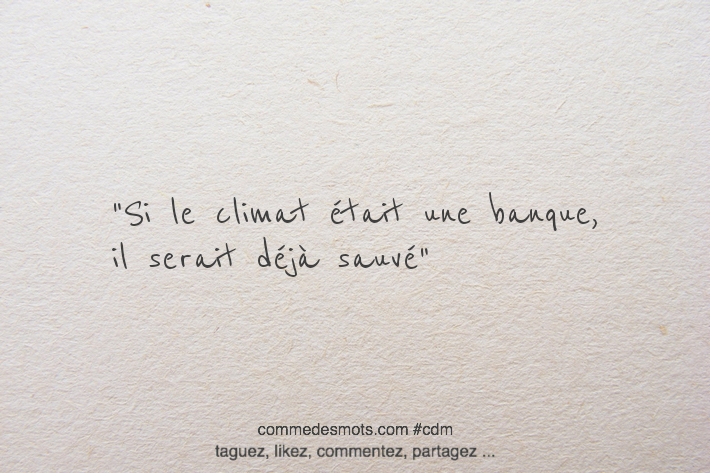 "Si le climat était une banque,
il serait déjà sauvé"
commedesmots.com #cdm
taguez, likez, commentez, partagez ...